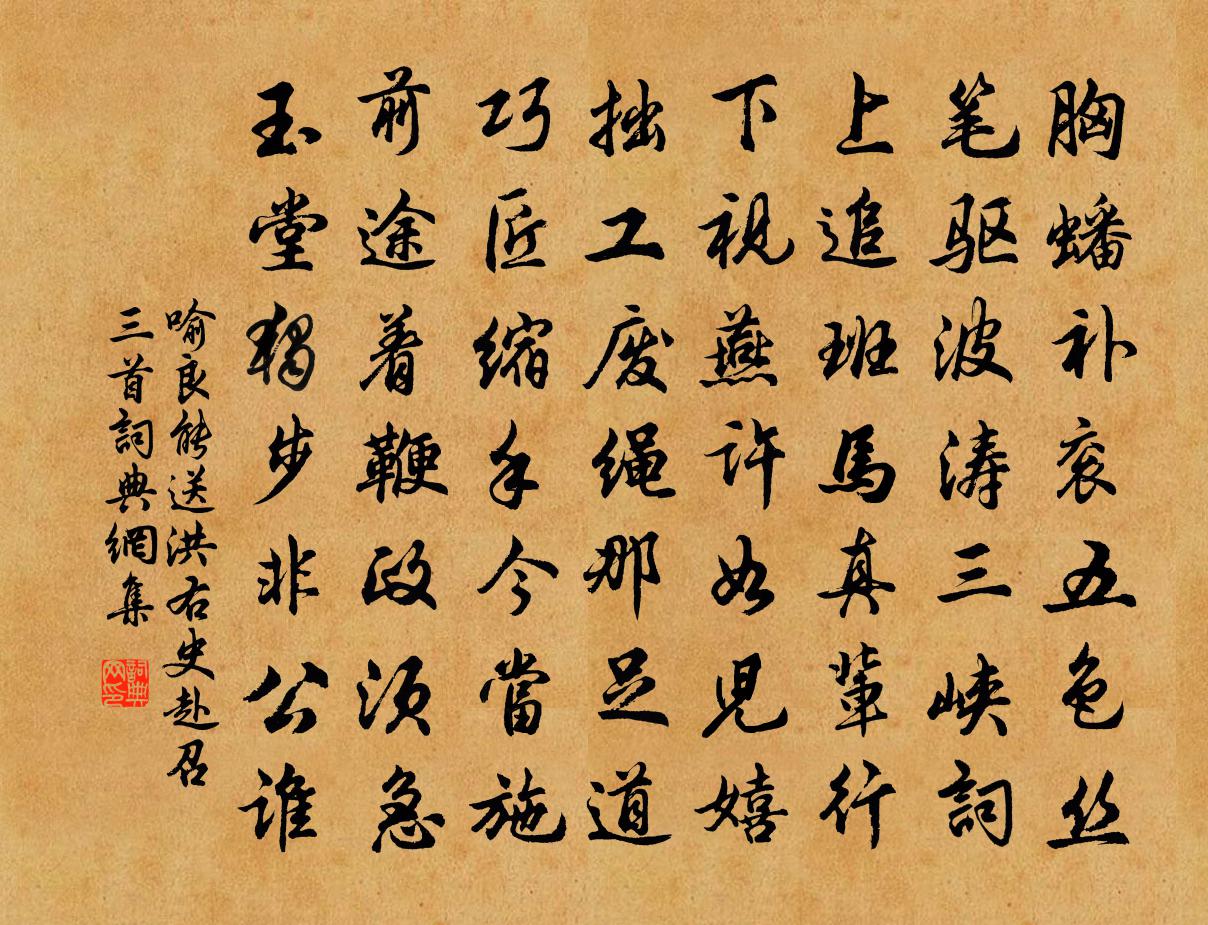 胸蟠补衮五色丝
笔驱波涛三峡詞
上追班馬真輩行
下視燕許如児嬉
拙工废绳那足道
巧匠缩手今當施
前途着鞭政须急
玉堂獨步非公谁
喻良能送洪右史赴召
三首詞典網集
詞典网印